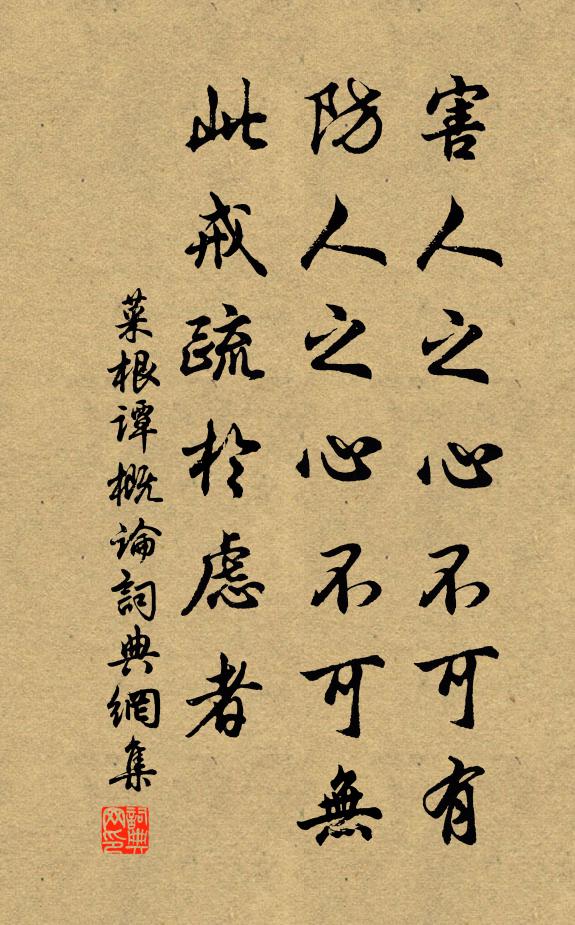 害人之心不可有
防人之心不可無
此戒疏於慮者
菜根譚概論詞典網集
詞典网印